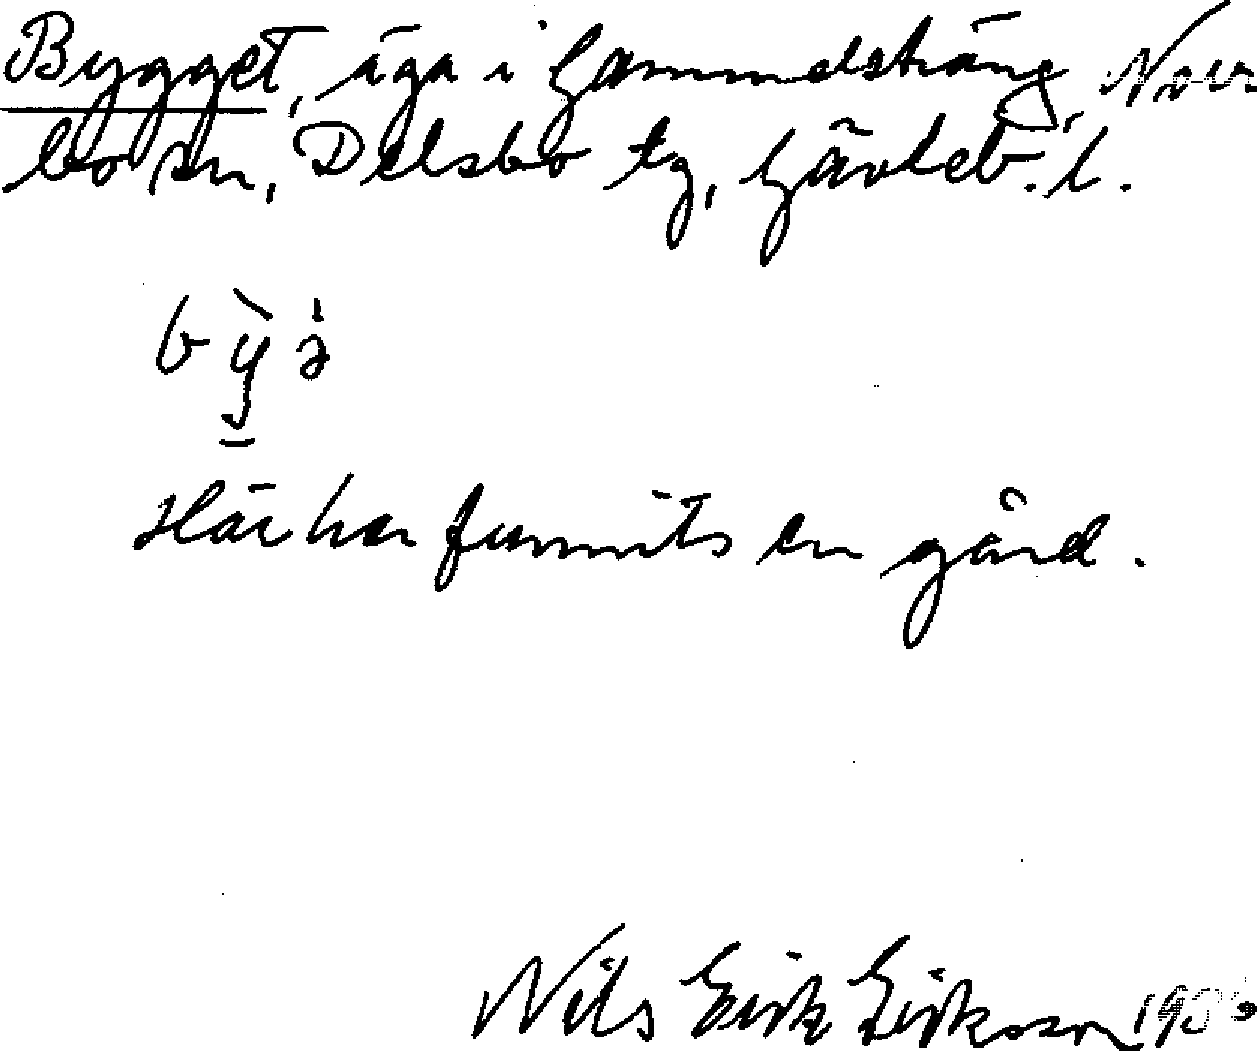 Bygget, äga i Gammelsträng, Norr
bo sn, Delsbo tg, Gävleb. l.
bỳ̱ə̇
Här har funnits en gård.
Nils Erik Eriksson